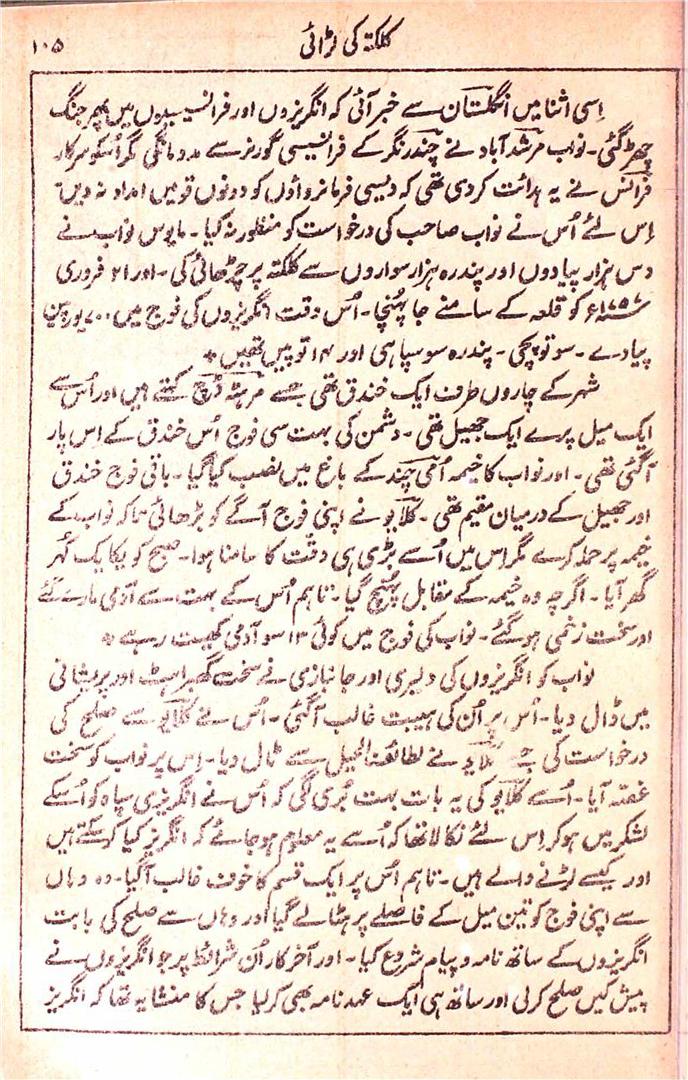 ۱۰۵
کلکتہ کی لڑائی
اِسی اثنا میں انگلستان سے خبر آئی کہ انگریزوں اور فرانسیسیوں میں پھر جنگ
چھڑ گئی۔ نواب مرشد آباد نے چندر نگر کے فرانسیسی گورنر سے مدد مانگی مگر اُسکو سرکار
فرانس نے یہ ہدائت کر دی تھی کہ دیسی فرمانرواؤں کو دونوں قومیں امداد نہ دیں۔
اِس لئے اُس نے نواب صاحب کی درخواست کو منظور نہ کیا۔ مایوس نواب نے
دس ہزار پیادوں اور پندرہ ہزار سواروں سے کلکتہ پر چڑھائی کی۔ اور ۲۱ فروری
۱۷۵۷ء کو قلعہ کے سامنے جا پہُنچا۔ اُس وقت انگریزوں کی فوج میں ۷۰۰ یورپین
پیادے۔ سو توپچی۔ پندرہ سو سپاہی اور ۱۴ توپیں تھیں *
شہر کے چاروں طرف ایک خندق تھی جسے مرہٹہ ڈچ کہتے ہیں اور اُس سے
ایک میل پرے ایک جھیل تھی۔ دشمن کی بہت سی فوج اُس خندق کے اِس پار
آ گئی تھی۔ اور نواب کا خیمہ اُمی چند کے باغ میں نصب کیا گیا۔ باقی فوج خندق
اور جھیل کے درمیان مقیم تھی۔ کلایو نے اپنی فوج آگے کو بڑھائی تاکہ نواب کے
خیمہ پر حملہ کرے مگر اس میں اُسے بڑی ہی دقّت کا سامنا ہوا۔ صبح کو یکایک کُہر
گھر آیا۔ اگرچہ وہ خیمہ کے مقابل پہُنچ گیا۔ تاہم اُس کے بہت سے آدمی مارے گئے
اور سخت زخمی ہو گئے۔ نواب کی فوج میں کوئی ۱۳ سو آدمی کھیت رہے *
نواب کو انگریزوں کی دلیری اور جانبازی نے سخت گھبراہٹ اور پریشانی
میں ڈال دیا۔ اُس پر اُن کی ہیبت غالب آ گئی۔ اُس نے کلایو سے صلح کی
درخواست کی جسے کلایو نے لطائف الحیل سے ٹال دیا۔ اِس پر نواب کو سخت
غصّہ آیا۔ اُسے کلایو کی یہ بات بہت بُری لگی کہ اُس نے انگریزی سپاہ کو اُسکے
لشکر میں ہو کر اِس لئے نکالا تھا کہ اُسے یہ معلوم ہو جائے کہ انگریز کیا کر سکتے ہیں
اور کیسے لڑنے والے ہیں۔ تاہم اُس پر ایک قسم کا خوف غالب آ گیا۔ وہ وہاں
سے اپنی فوج کو تین میل کے فاصلے پر ہٹا لے گیا اور وہاں سے صلح کی بابت
انگریزوں کے ساتھ نامہ و پیام شروع کیا۔ اور آخر کار اُن شرائط پر جو انگریزوں نے
پیش کیں صلح کر لی اور ساتھ ہی ایک عہد نامہ بھی کر لیا جس کا منشا یہ تھا کہ انگریز